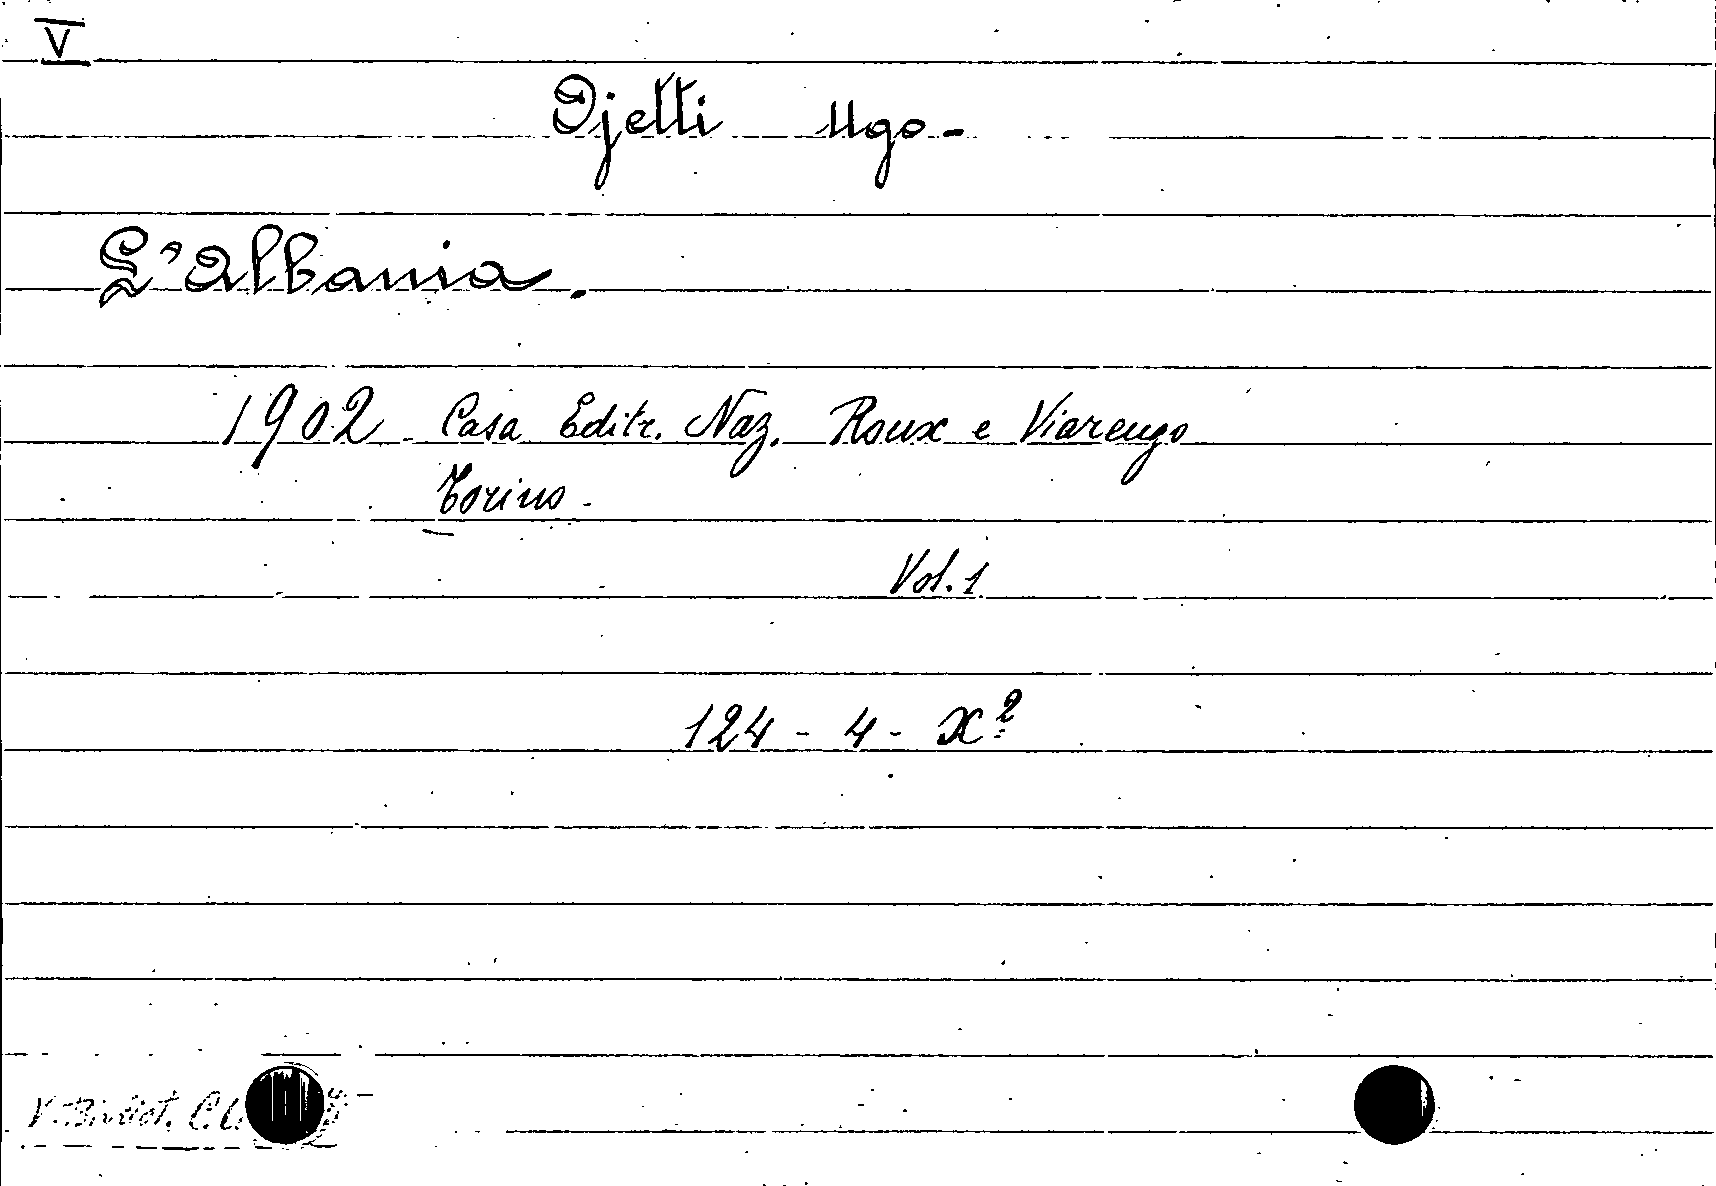 V
Ojetti Ugo -
L'Albania.
1902 - Casa Editr. Naz. Roux e Viarengo
Torino -
Vol. 1
124 - 4 - X²
V. Bibliot.